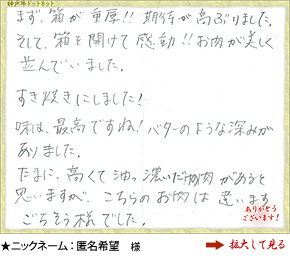 神戸牛ドットネット
まず、箱が重厚!! 期待が高ぶりました。
そして、箱を開けて感動!! お肉が美しく
並んでいました。
すき焼きにしました!
味は、最高ですね! バターのような深みが
ありました。
たまに、高くて油っ濃いだけの肉があると
思いますが、こちらのお肉は違います
ごちそう様でした。
ありがとう
ございます!
★ニックネーム：匿名希望 様
拡大して見る